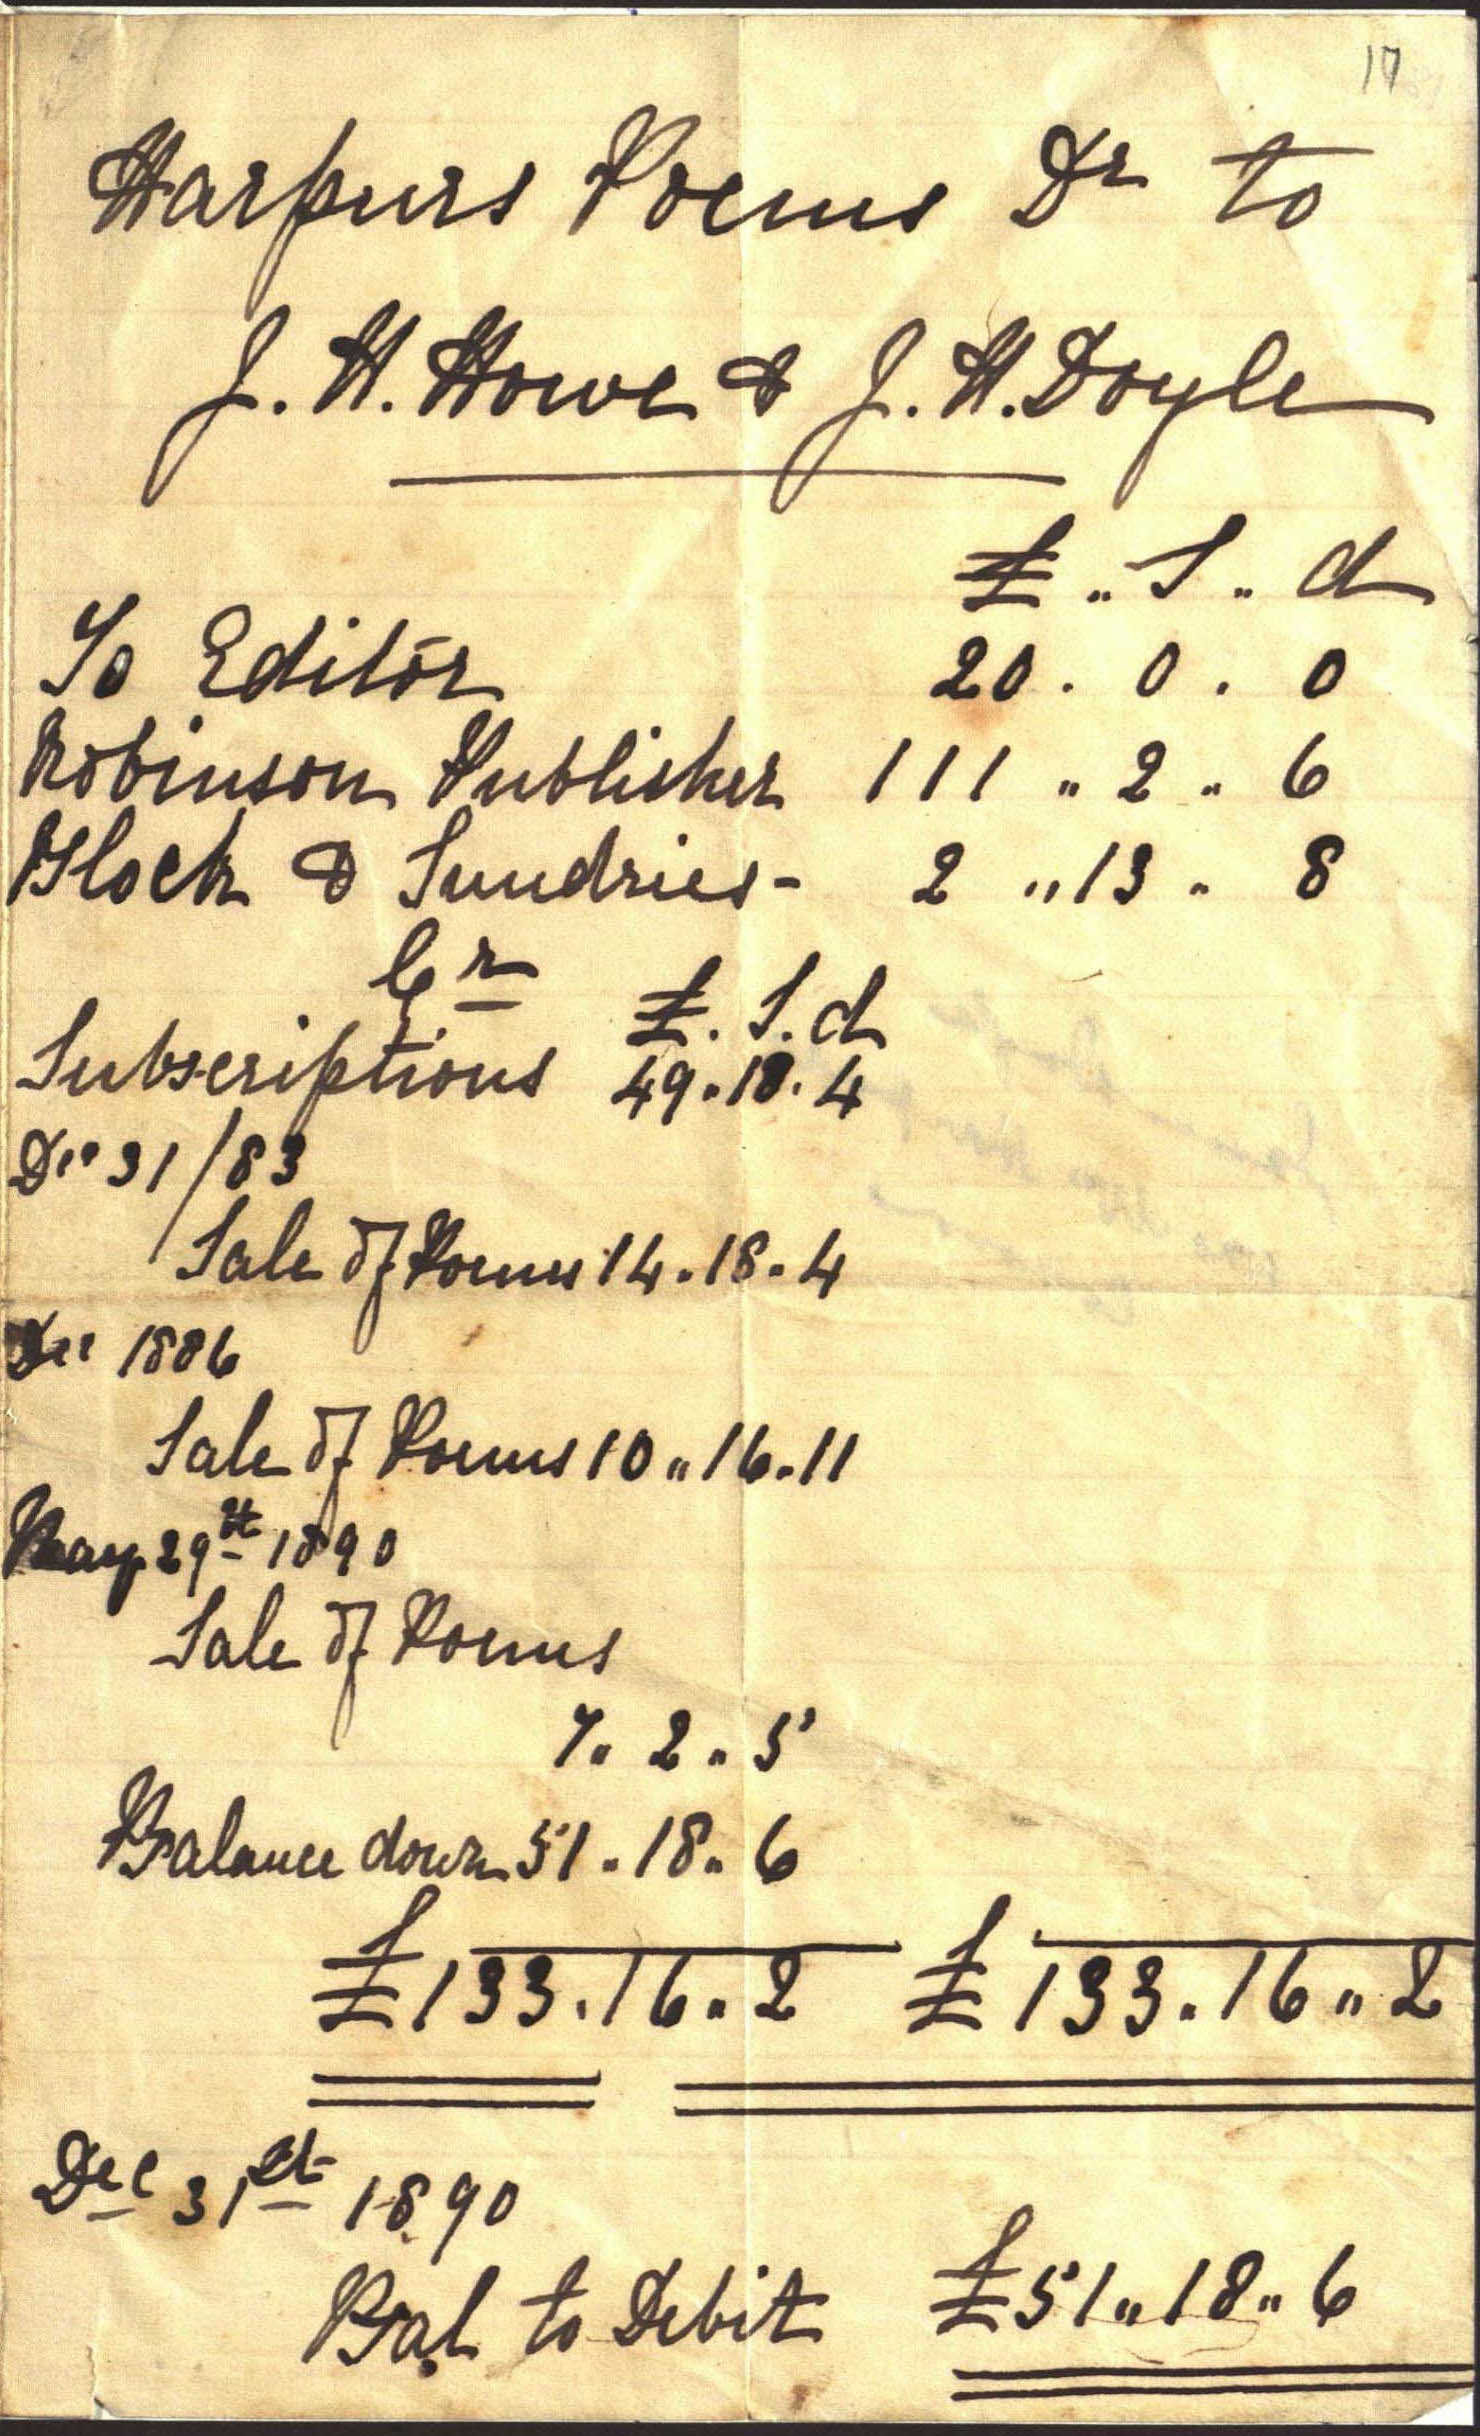 17
Harpurs Poems Dr to
J. H. Howe & J. H. Doyle
£ .. S .. d
To Editor 20 . 0 . 0
Robinson Publisher 111 .. 2 .. 6
Block & Sundries - 2 .. 13 .. 8
Cr £. S. d
Subscriptions 49.18.4
Dec 31/83
Sale of Poems 14.18.4
Dec 1886
Sale of Poems 10..16.11
May 29th 1890
Sale of Poems
7.. 2 .. 5
Balance down 51.18.6
£133.16.2 £133.16..2
Dec 31st 1890
Bal to Debit £51..18..6